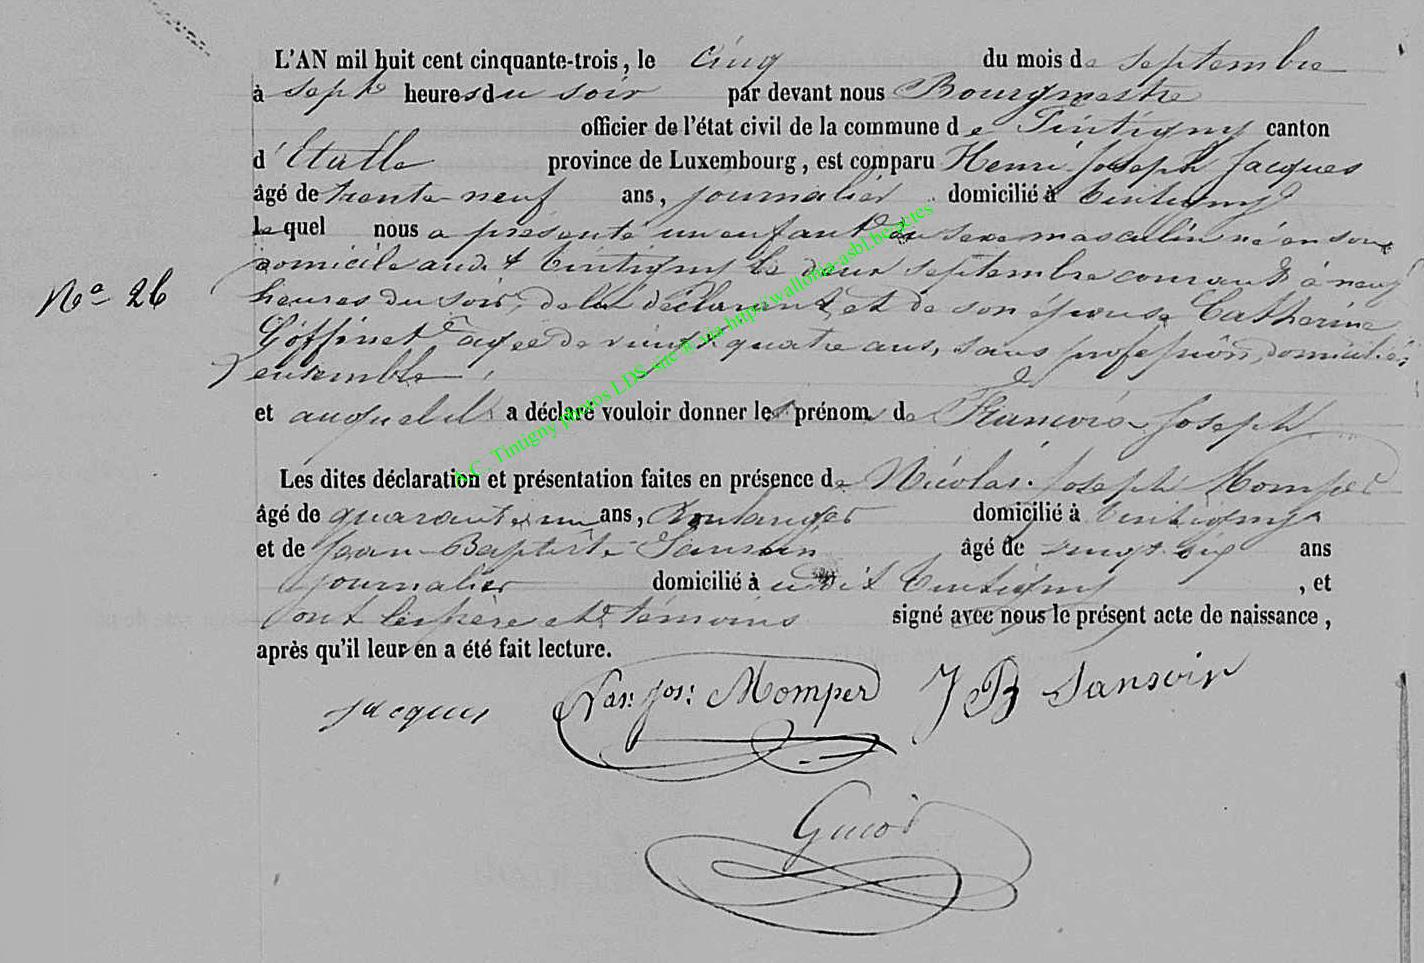 L'AN mil huit cent cinquante-trois, le cinq du mois de septembre
à sept heures du soir par devant nous Bourgmestre
officier de l'état civil de la commune de Tintigny canton
d'Etalle province de Luxembourg, est comparu Henri Joseph Jacques
âgé de trente neuf ans, journalier domicilié à Tintigny
le quel nous a présenté un enfant du sexe masculin né en son
domicile audit Tintigny le deux septembre courant à neuf
No 26
heures du soir, de lui déclarant et de son épouse Catherine
Goffinet agée de vingt quatre ans, sans profession, domiciliés
ensemble
et auquel il a déclaré vouloir donner les prénoms de François Joseph
Les dites déclaration et présentation faites en présence de Nicolas Joseph Momper
âgé de quarante un ans, Boulanger domicilié à Tintigny
et de Jean Baptiste Sansoin âgé de vingt six ans
journalier domicilié à udit Tintigny, et
ont les père et témoins signé avec nous le présent acte de naissance,
après qu'il leur en a été fait lecture.
Jacques Nas: Jos: Momper J B Sansoin
Guiot
A.C. Tintigny photos LDS, site @ via http://wallonia-asbl.be/actes